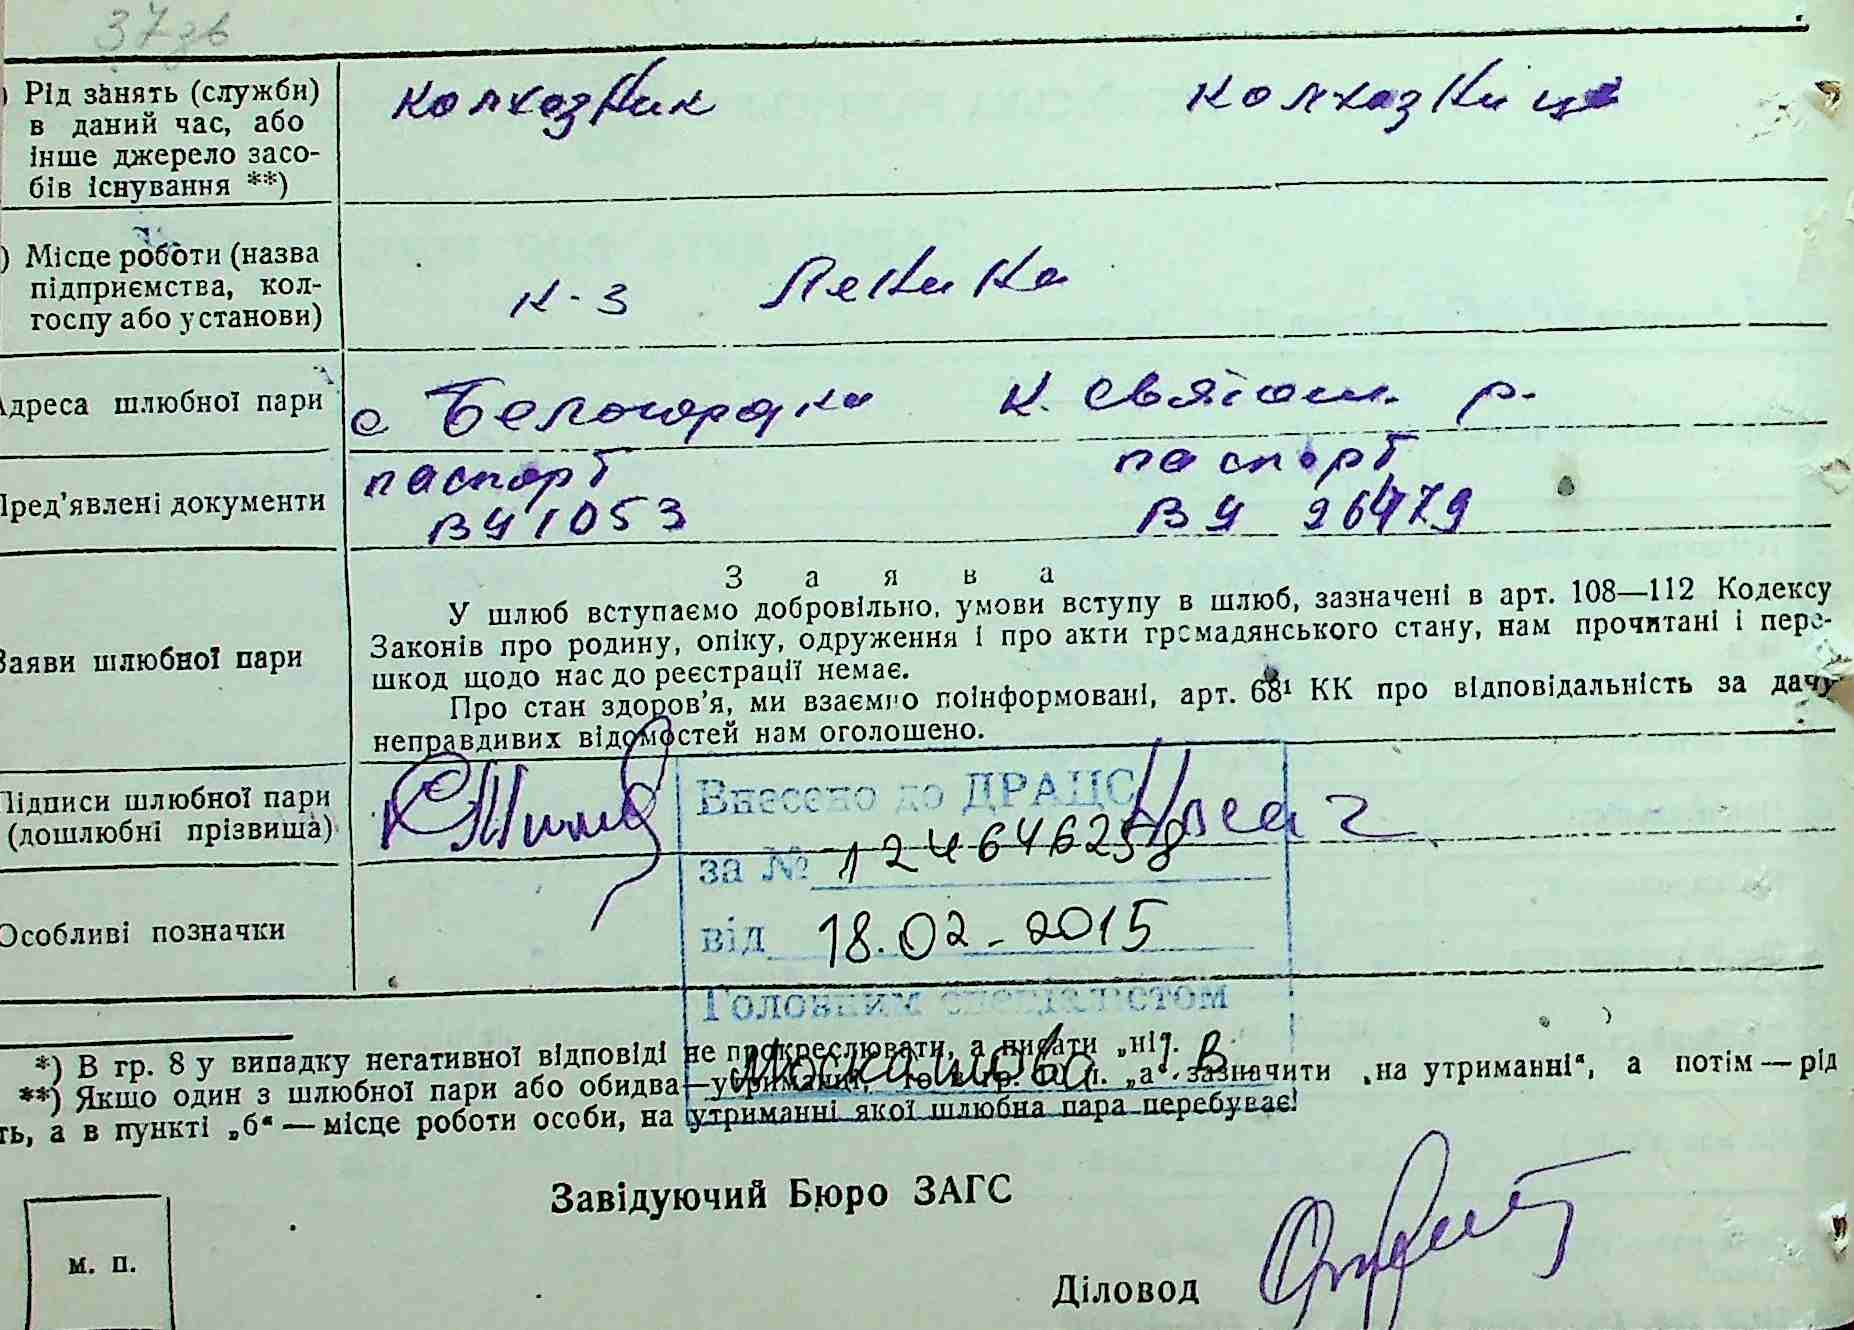 37 зв
) Рід занять (служби) в даний час, або інше джерело засо- бів існування **)
колхазник колхазница
) Місце роботи (назва підприємства, кол- госпу або установи)
к-з Ленина
Адреса шлюбної пари
с Белогородка К. Святош. р.
Пред’явлені документи
паспорт паспорт
ВЧ 1053 ВЧ 26479
З а я в а
У шлюб вступаємо добровільно, умови вступу в шлюб, зазначені в арт. 108—112 Кодексу
Законів про родину, опіку, одруження і про акти громадянського стану, нам прочитані і пере-
шкод щодо нас до реєстрації немає.
Заяви шлюбної пари
Про стан здоров’я, ми взаємно поінформовані, арт. 68¹ КК про відповідальність за дачу
неправдивих відомостей нам оголошено.
Підписи шлюбної пари
(дошлюбні прізвища)
Внесено до ДРАЦС
за № 124646258
від 18.02.2015
Особливі позначки
Головним спеціалістом
*) В гр. 8 у випадку негативної відповіді не прокреслювати, а писати „ні“.
**) Якщо один з шлюбної пари або обидва—утриманці, то в гр. п. „а“ зазначити „на утриманні“, а потім — рід
ть, а в пункті „б“ — місце роботи особи, на утриманні якої шлюбна пара перебуває!
Завідуючий Бюро ЗАГС
м. п.
Діловод